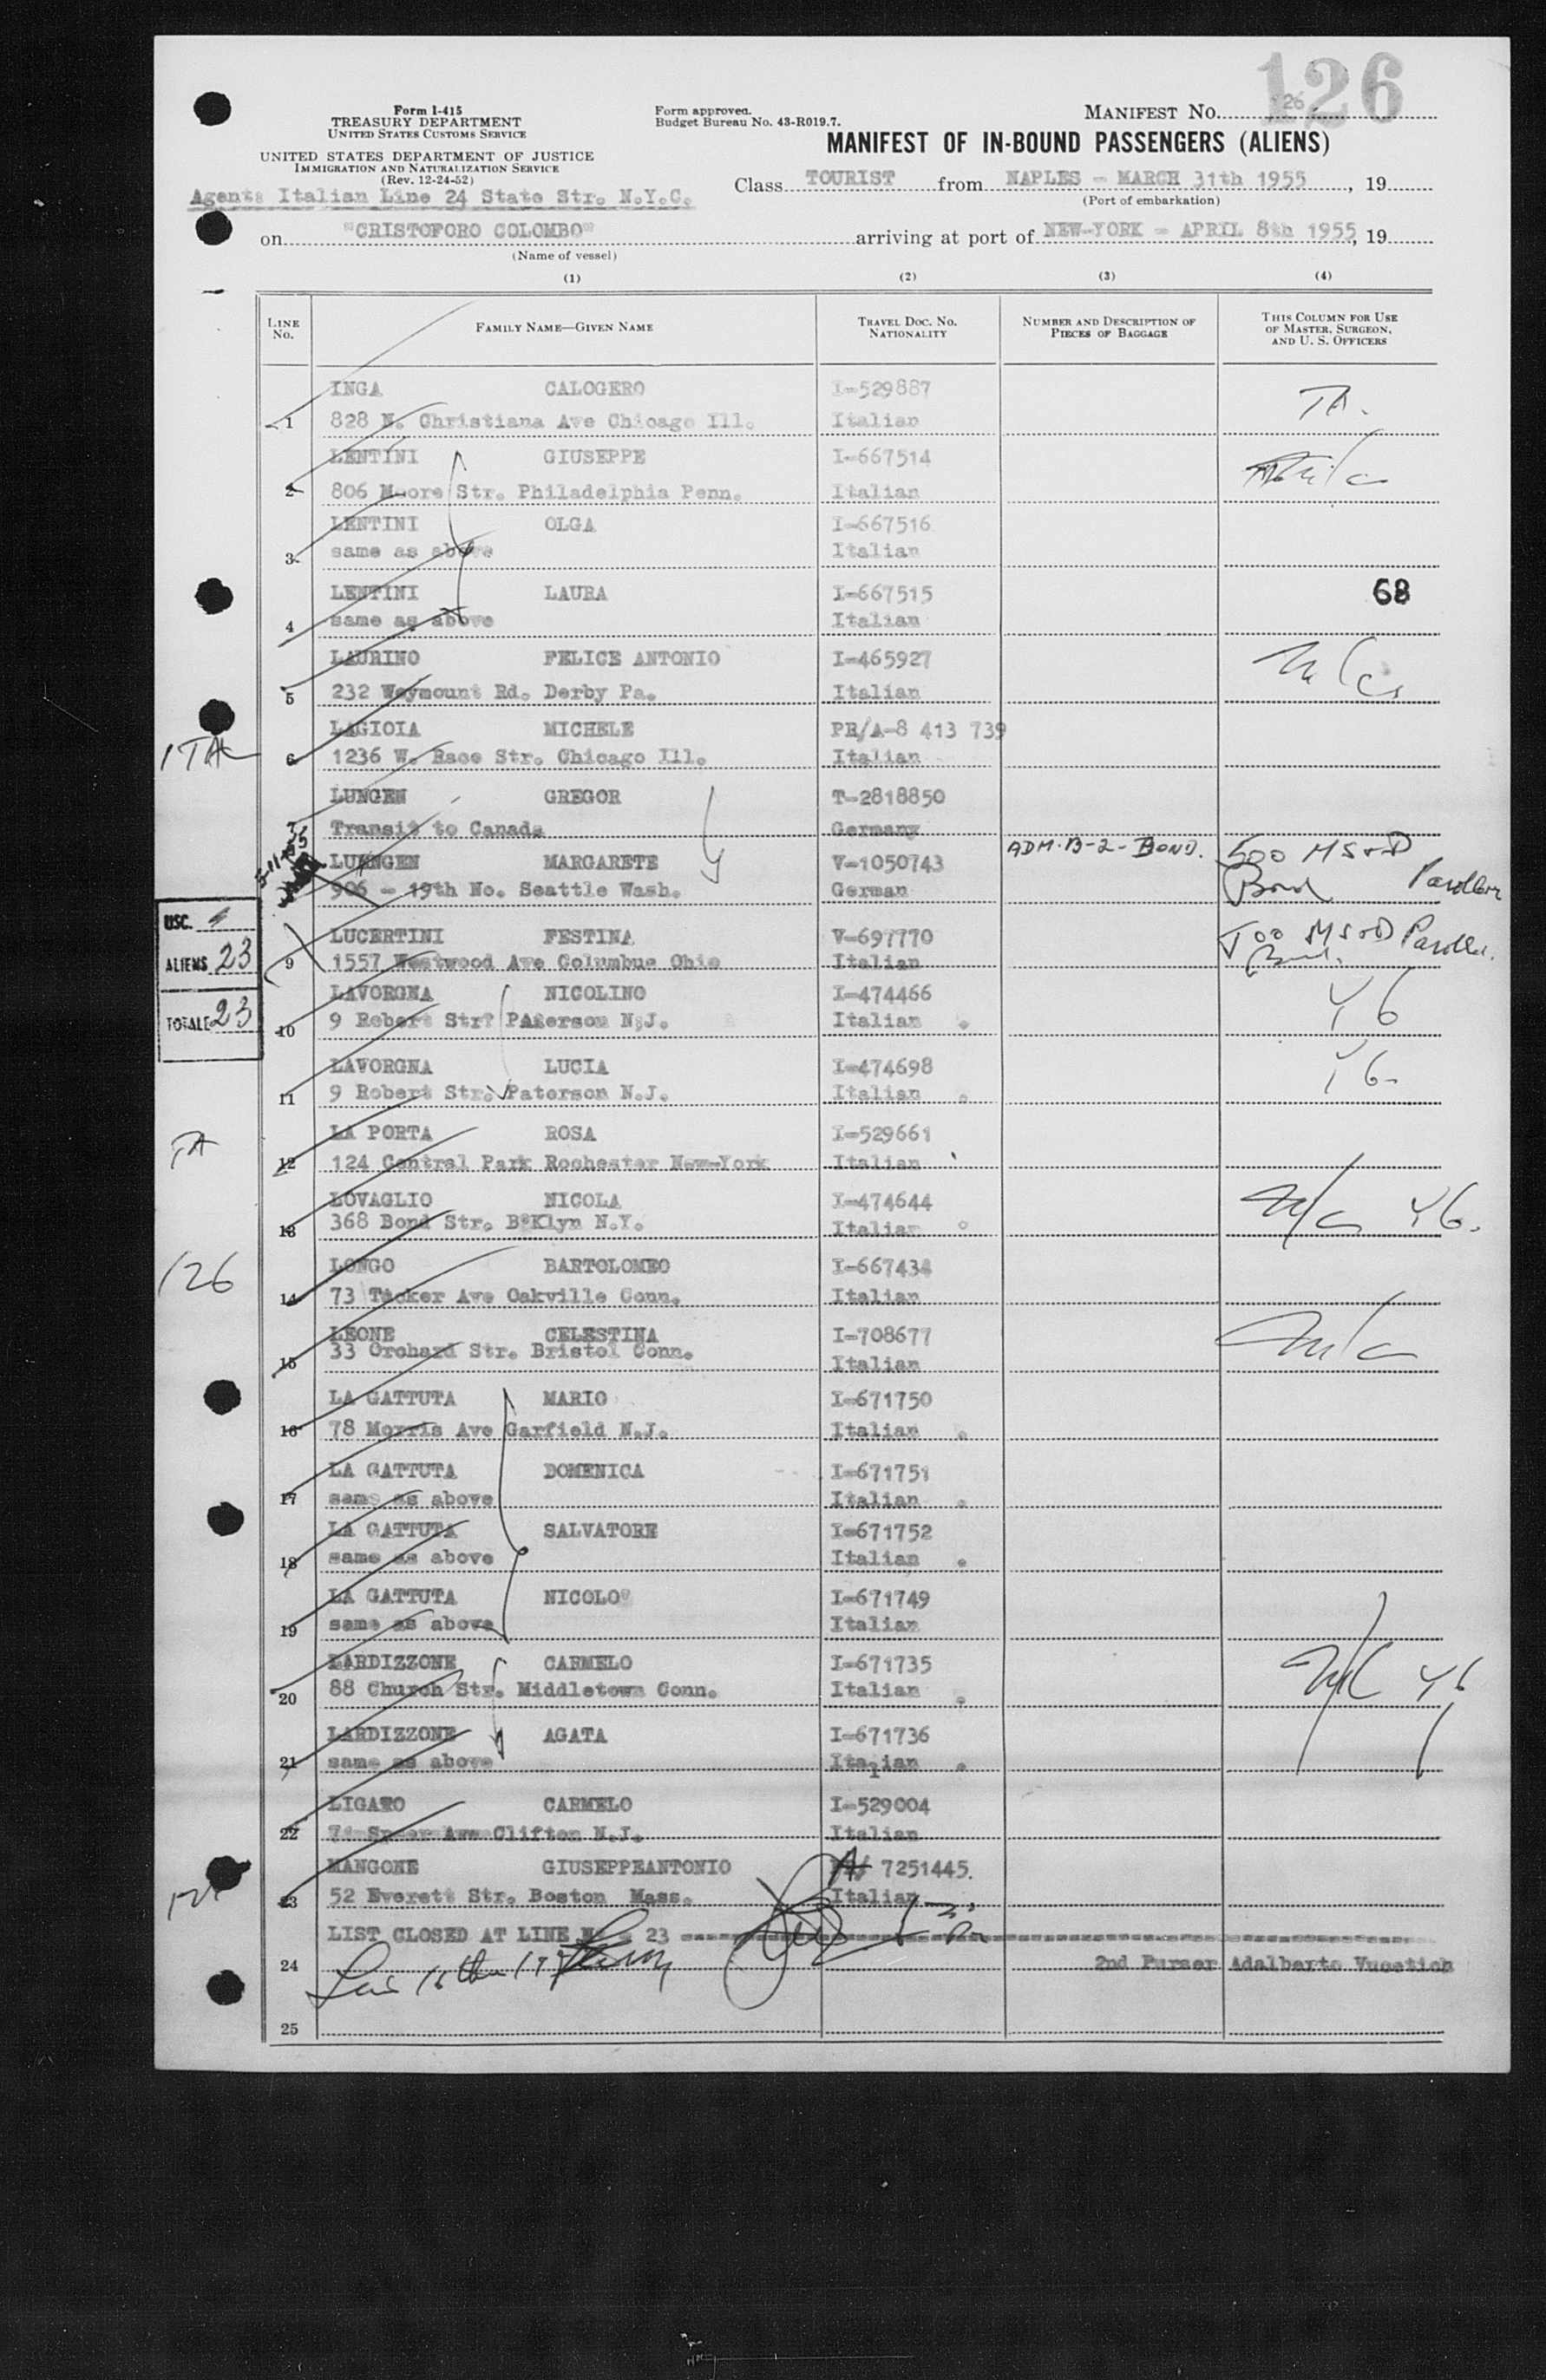 126
Form I-415
TREASURY DEPARTMENT
UNITED STATES CUSTOMS SERVICE
UNITED STATES DEPARTMENT OF JUSTICE
IMMIGRATION AND NATURALIZATION SERVICE
(Rev. 12-24-52)
Agents Italian Line 24 State Str. N.Y.C.
Form approved.
Budget Bureau No. 43-R019.7.
MANIFEST NO. 126
MANIFEST OF IN-BOUND PASSENGERS (ALIENS)
Class TOURIST from NAPLES - MARCH 31th 1955, 19
(Port of embarkation)
on "CRISTOFORO COLOMBO" arriving at port of NEW-YORK - APRIL 8th 1955, 19
(Name of vessel)
(1) (2) (3) (4)
LINE NO. FAMILY NAME—GIVEN NAME TRAVEL DOC. NO. NATIONALITY NUMBER AND DESCRIPTION OF PIECES OF BAGGAGE THIS COLUMN FOR USE OF MASTER, SURGEON, AND U. S. OFFICERS
INGA CALOGERO I-529887 TA.
1 828 N. Christiana Ave Chicago Ill. Italian
LENTINI GIUSEPPE I-667514
2 806 Moore Str. Philadelphia Penn. Italian
LENTINI OLGA I-667516
3 same as above Italian
LENTINI LAURA I-667515 68
4 same as above Italian
LAURINO FELICE ANTONIO I-465927
5 232 Weymount Rd. Derby Pa. Italian
LAGIOIA MICHELE PR/A-8 413 739
6 1236 W. Race Str. Chicago Ill. Italian
LUNGEN GREGOR T-2818850
7 Transit to Canada Germany
LUENGEN MARGARETE V-1050743 ADM. B-2- BOND. 500 MS&D
906 - 19th No. Seattle Wash. German Bond
USC.
ALIENS 23
TOTALE 23
LUCERTINI FESTINA V-697770 500 MS&D
9 1557 Westwood Ave Columbus Ohio Italian
LAVORGNA NICOLINO I-474466 Y6
10 9 Robert Str? PAterson N;J. Italian
LAVORGNA LUCIA I-474698 Y6-
11 9 Robert Str. Paterson N.J. Italian
TA
LA PORTA ROSA I-529661
12 124 Central Park Rochester New-York Italian
LOVAGLIO NICOLA I-474644 Y6.
13 368 Bond Str. B°Klyn N.Y. Italian
126
LONGO BARTOLOMEO I-667434
14 73 Tucker Ave Oakville Conn. Italian
LEONE CELESTINA I-708677
15 33 Orchard Str. Bristol Conn. Italian
LA GATTUTA MARIO I-671750
16 78 Morris Ave Garfield N.J. Italian
LA GATTUTA DOMENICA I-671751
17 same as above Italian
LA GATTUTA SALVATORE I-671752
18 same as above Italian
LA GATTUTA NICOLO" I-671749
19 same as above Italian
LARDIZZONE CARMELO I-671735 Y6
20 88 Church Str. Middletown Conn. Italian
LARDIZZONE AGATA I-671736
21 same as above Italian
LIGATO CARMELO I-529004
22 Ave Clifton N.J. Italian
MANGONE GIUSEPPEANTONIO A 7251445.
23 52 Everett Str. Boston Mass. Italian
LIST CLOSED AT LINE N. 23
24 2nd Purser Adalberto Vucetich
25